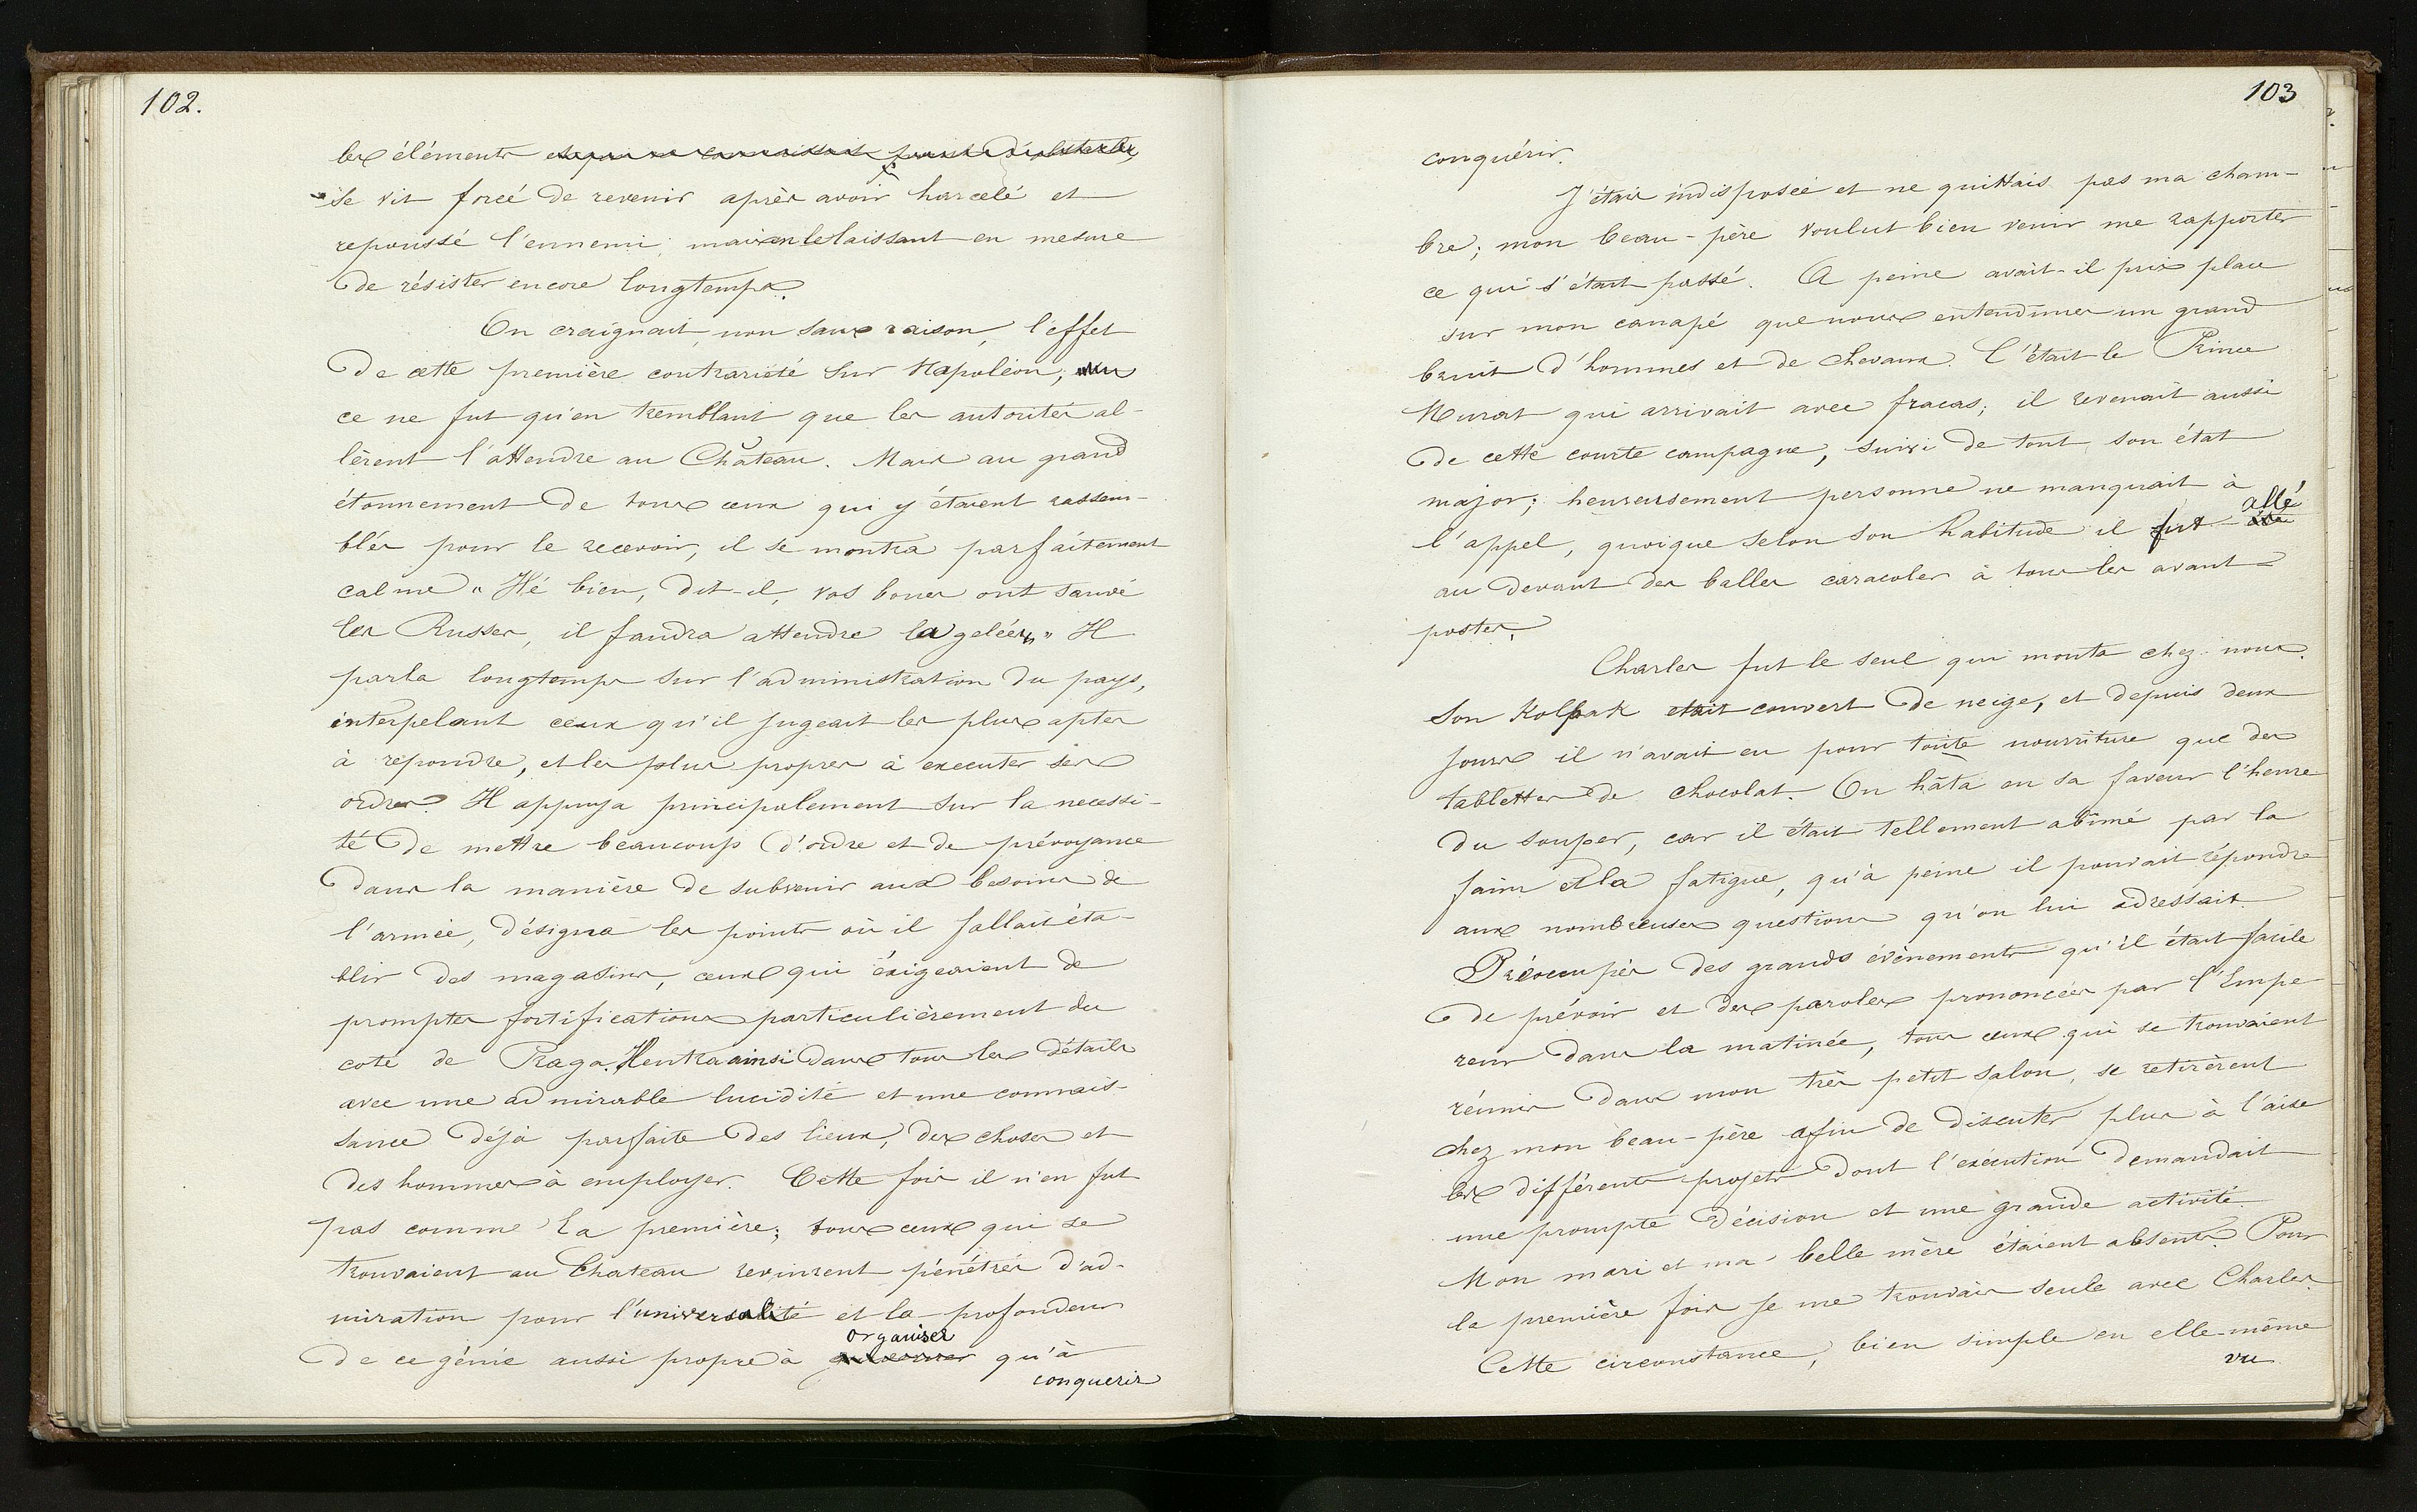 102.
les éléments
se vit forcé de revenir après avoir harcelé et
repoussé l'ennemi; mais en le laissant en mesure
de résister encore longtemps.
On craignait, non sans raison, l'effet
de cette première contrariété sur Napoléon,
ce ne fut qu'en tremblant que les autorités al-
lèrent l'attendre au Château. Mais au grand
étonnement de tous ceux qui y étaient rassem-
blés pour le recevoir, il se montra parfaitement
calme " Hé bien, dit-il, vos boues ont sauvé
les Russes, il faudra attendre la gelée." Il
parla longtemps sur l'administration du pays,
interpelant ceux qu'il jugeait les plus aptes
à repondre, et les plus propres à executer ses
ordres. Il appuya principalement sur la necessi-
té de mettre beaucoup d'ordre et de prévoyance
dans la manière de subvenir aux besoins de
l'armée, désigna les points où il fallait éta-
blir des magasins, ceux qui éxigeaient de
promptes fortifications particulièrement du
coté de Praga. Il entra ainsi dans tous les détails
avec une admirable lucidité et une connais-
sance déjà parfaite des lieux, des choses et
des hommes à employer. Cette fois il n'en fut
pas comme la première; tous ceux qui se
trouvaient au Chateau revinrent pénétrés d'ad-
miration pour l'universalité et la profondeur
organiser
de ce génie aussi propre à qu'à
conquerir
103
conquérir.
J'étais indisposée et ne quittais pas ma cham-
bre; mon beau-père voulut bien venir me rapporter
ce qui s'était passé. A peine avait-il pris place
sur mon canapé que nous entendimes un grand
bruit d'hommes et de chevaux. C'était le Prince
Murat qui arrivait avec fracas; il revenait aussi
de cette courte campagne, suivi de tout son état
major; heureusement personne ne manquait à
allé
l'appel, quoique selon son habitude il fut
au devant des balles caracoler à tous les avant-
postes.
Charles fut le seul qui monta chez nous.
Son Kolpak était couvert de neige, et depuis deux
jours il n'avait eu pour toute nourriture que des
tablettes de chocolat. On hâta en sa faveur l'heure
du souper, car il était tellement abîmé par la
faim et la fatigue, qu'à peine il pouvait répondre
aux nombreuses questions qu'on lui adressait.
Préoccupés des grands évènements qu'il était facile
de prévoir et des paroles prononcées par l'Empe
reur dans la matinée, tous ceux qui se trouvaient
réunis dans mon très petit salon, se retirèrent
chez mon beau-père afin de discuter plus à l'aise
les différents projets dont l'exécution demandait
une prompte décision et une grande activité.
Mon mari et ma belle mère étaient absents. Pour
la première fois je me trouvais seule avec Charles.
Cette circonstance, bien simple en elle-même
vu